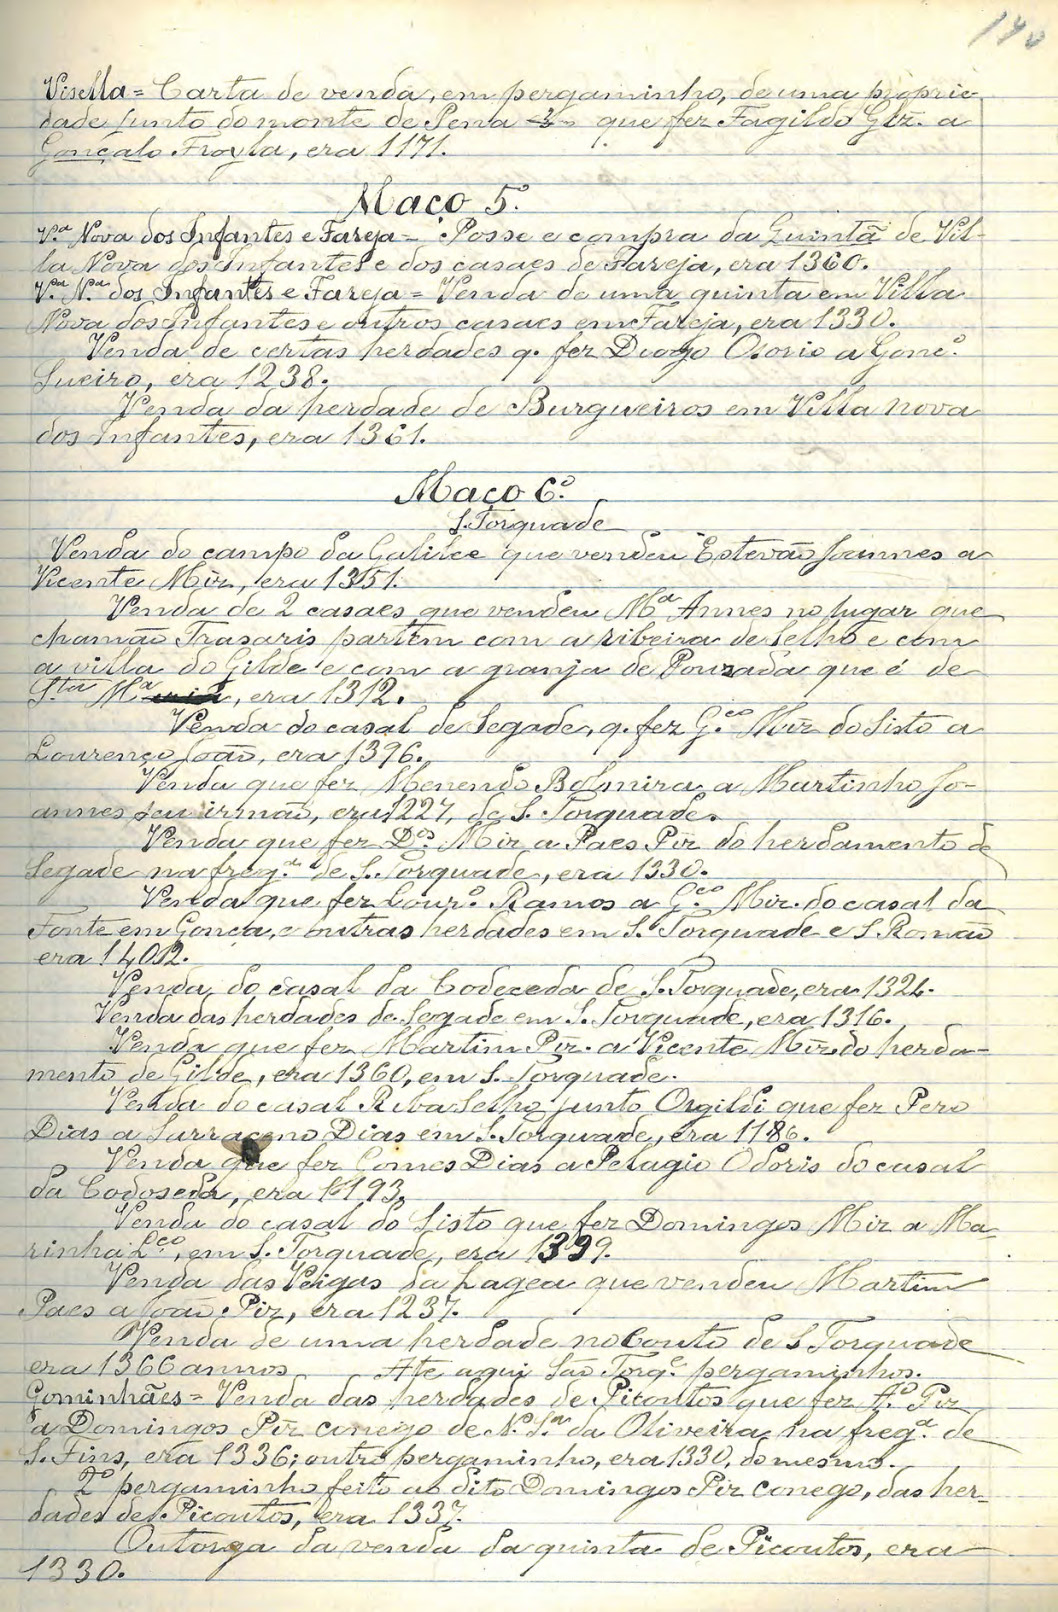 Visella = Carta de venda, em pergaminho, de uma proprie-
dade junto do monte de Pena que fez Fagildo Glz. a
Gonçalo Froyla, era 1171.
Maço 5.º
V.ª Nova dos Infantes e Fareja = Posse e compra da Quintã de Vil-
la Nova dos Infantes e dos casaes de Fareja, era 1360.
V.ª N.ª dos Infantes e Fareja = Venda de uma quinta em Villa
Nova dos Infantes e outros casaes em Fareja, era 1330.
Venda de certas herdades q. fez Diogo Osorio a Gonc.º
Sueiro, era 1238.
Venda da herdade de Burgueiros em Villa nova
dos Infantes, era 1361.
Maço 6.º
S. Torquade
Venda do campo da Galilee que vendeu Estevão Joannes a
Vicente Miz, era 1351.
Venda de 2 casaes que vendeu M.ª Annes no lugar que
chamão Trasaris partem com a ribeira de Selho e com
a villa do Gilde e com a granja de Pousada que é de
S.ta M.ª, era 1312.
Venda do casal de Segade, q. fez G.co Miz do Sisto a
Lourenço João, era 1396.
Venda que fez Menendo Balmira a Martinho Jo-
annes seu irmão, era 1227, de S. Torquade.
Venda que fez D.os Miz a Paes Piz do herdamento de
Segade na freg.ª de S. Torquade, era 1330.
Venda que fez Lour.º Ramos a G.co Miz. do casal da
Fonte em Gonca, e outras herdades em S. Torquade e S. Romão
era 1402.
Venda do casal da Codeceda de S. Torquade, era 1324.
Venda das herdades de Segade em S. Torquade, era 1316.
Venda que fez Martim Piz. a Vicente Miz do herda-
mento de Gilde, era 1360, em S. Torquade.
Venda do casal Riba Selho junto Orgildi que fez Pero
Dias a Sarraceno Dias em S. Torquade, era 1186.
Venda que fez Gomes Dias a Pelagio Odoris do casal
da Codoseda, era 1193.
Venda do casal do Sisto que fez Domingos Miz a Ma-
rinha L.co, em S. Torquade, era 1399.
Venda das Veigas da Lagea que vendeu Martim
Paes a João Piz, era 1237.
Venda de uma herdade no Couto de S. Torquade
era 1366 annos Ate aqui são Torq.e pergaminhos.
Gominhães = Venda das herdades de Picoutos que fez A.º Piz
a Domingos Piz conego de N.ª S.ra da Oliveira, na freg.ª de
S. Fins, era 1336; outro pergaminho, era 1330, do mesmo.
2.º pergaminho feito ao dito Domingos Piz conego, das her-
dades de Picoutos, era 1337.
Outorga da venda da quinta de Picoutos, era
1330.